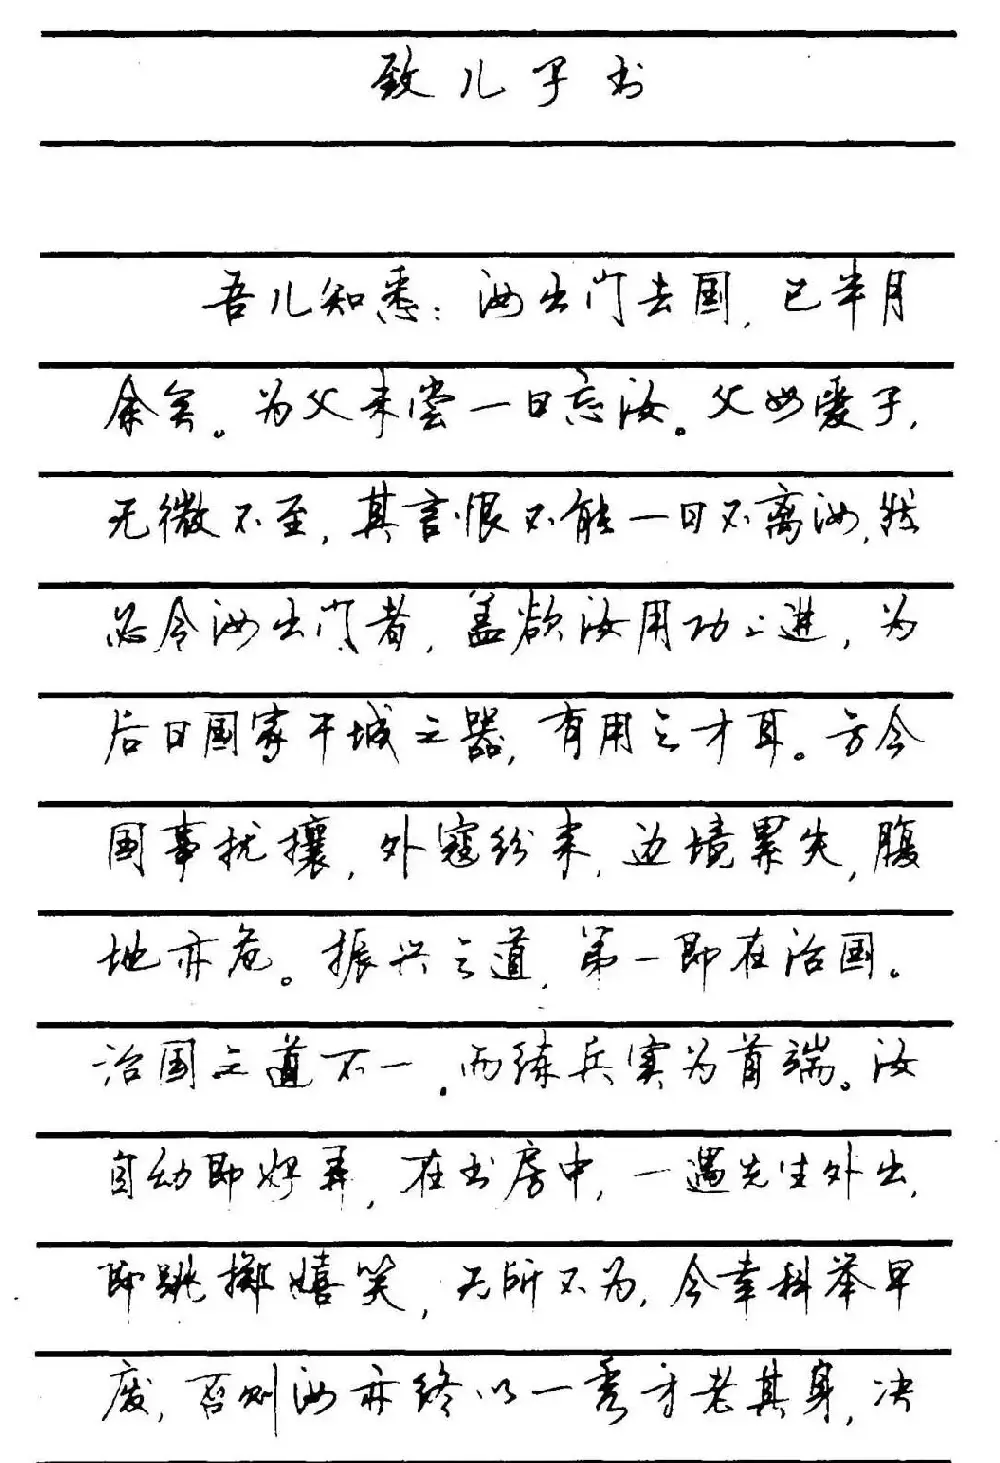 致儿子书
吾儿知悉：汝出门去国，已半月
余矣。为父未尝一日忘汝。父母爱子，
无微不至，其言恨不能一日不离汝，然
必令汝出门者，盖欲汝用功上进，为
后日国家干城之器，有用之才耳。方今
国事扰攘，外寇纷来，边境累失，腹
地亦危。振兴之道，第一即在治国。
治国之道不一，而练兵实为首端。汝
自幼即好弄，在书房中，一遇先生外出，
即跳掷嬉笑，无所不为，今幸科举早
废，否则汝亦终以一秀才老其身，决